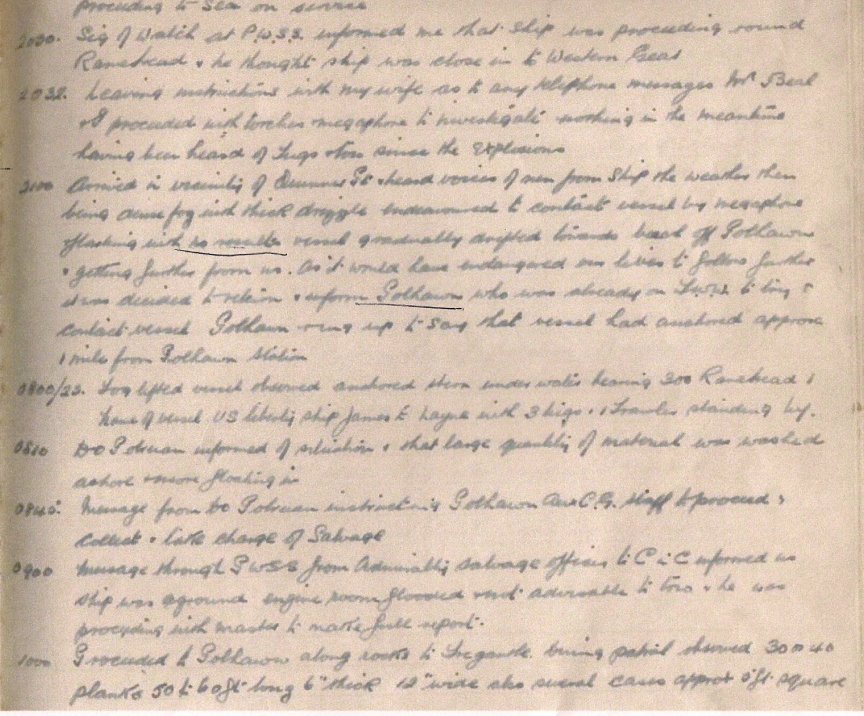 proceeding to Sea on service
2030. Sig of Watch at P.W.S.S. informed me that ship was proceeding round
Ramehead & he thought ship was close in to Western Gear
2032. Leaving instructions with my wife as to any telephone messages Mr Beal
& I proceeded with torches & megaphone to investigate nothing in the meantime
having been heard of Tugs since the Explosions
2100 Arrived in vicinity of Pt & heard voices of men from Ship the weather then
being dense fog with thick drizzle endeavoured to contact vessel by megaphone
flashing with no results vessel gradually drifted towards beach off Polhawn
& getting further from us. As it would have endangered our lives to follow further
it was decided to return & inform Polhawn who was already on to try &
contact vessel Polhawn rang up to say that vessel had anchored approx
1 mile from Polhawn Station
0800/22. Fog lifted vessel observed anchored stern under water bearing 300 Ramehead 1
name of vessel US liberty ship James E Layne with 3 tugs & 1 Trawler standing by.
0810 DO Polruan informed of situation & that large quantity of material was washed
ashore & more floating in
0840. Message from DO Polruan instructing Polhawn Aux C.G. staff to proceed &
collect & take charge of Salvage
0900 Message through PWSS from Admiralty Salvage officer to C in C informed us
ship was aground engine room flooded & not advisable to tow & he was
proceeding with master to make full report.
1000 Proceeded to Polhawn along rocks to Tregantle during patrol observed 30 or 40
planks 50 to 60 ft long 6" thick 12" wide also several cases approx 5 ft square